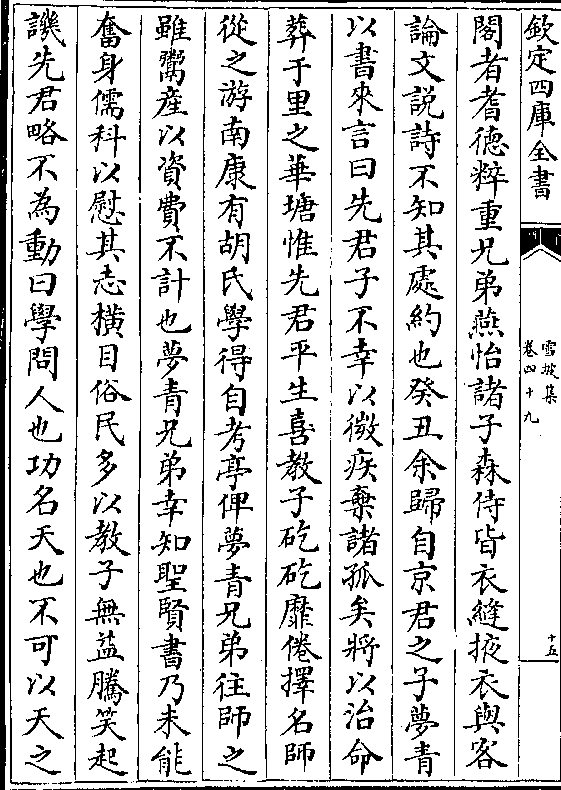 欽定四庫全書
雪坡集
卷四十九
十五
閣者耆德粹重兄弟燕怡諸子森侍皆衣縫掖衣與客
論文説詩不知其處約也癸丑余歸自京君之子夢青
以書來言曰先君子不幸以微疾棄諸孤矣將以治命
葬于里之華塘惟先君平生喜教子矻矻靡倦擇名師
從之游南康有胡氏學得自考亭俾夢青兄弟往師之
雖鬻産以資費不計也夢青兄弟幸知聖賢書乃未能
奮身儒科以慰其志橫目俗民多以教子無益騰笑起
譏先君略不為動曰學問人也功名天也不可以天之